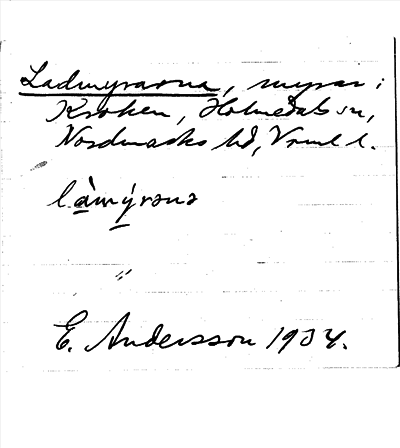 Ladmyrarna, myrar i
Kroken, Holmedals sn,
Nordmarks hd, Vrml l.
làmýrəna
"
E. Andersson 1934.